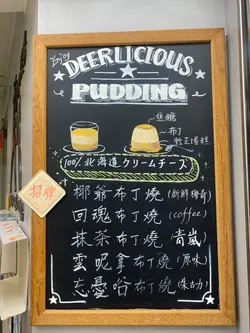 Enjoy
DEERLICIOUS
PUDDING
焦糖
布丁
軟芝士蛋糕
100% 北海道クリームチーズ
招牌
椰爺布丁燒 (新鮮椰青)
回魂布丁燒 (coffee)
抹茶布丁燒 (青嵐)
雲呢拿布丁燒 (原味)
忘憂谷布丁燒 (朱古力)